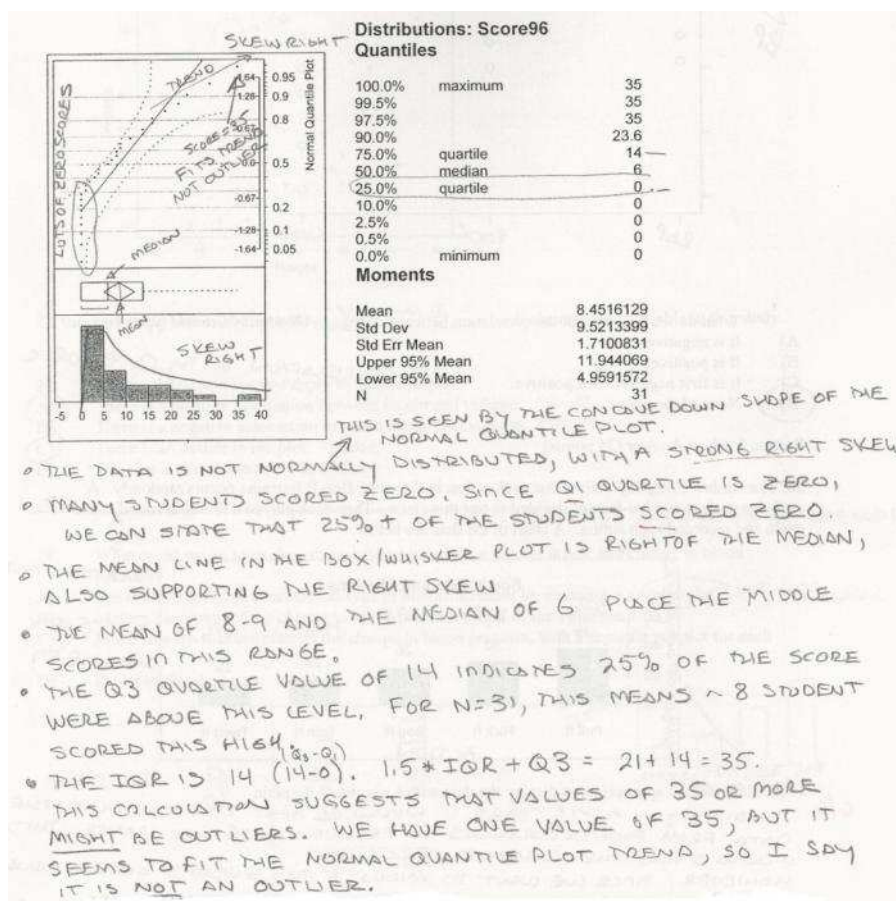 SKEW RIGHT
Distributions: Score96
Quantiles
LOTS OF ZERO SCORES
TREND
SCORE=35
FITS TREND
NOT OUTLIER
1.64
1.28
0.67
0.0
-0.67
-1.28
-1.64
0.95
0.9
0.8
0.5
0.2
0.1
0.05
Normal Quantile Plot
100.0% maximum 35
99.5% 35
97.5% 35
90.0% 23.6
75.0% quartile 14
50.0% median 6
25.0% quartile 0
10.0% 0
2.5% 0
0.5% 0
0.0% minimum 0
MEDIAN
MEAN
SKEW
RIGHT
-5 0 5 10 15 20 25 30 35 40
Moments
Mean 8.4516129
Std Dev 9.5213399
Std Err Mean 1.7100831
Upper 95% Mean 11.944069
Lower 95% Mean 4.9591572
N 31
THIS IS SEEN BY THE CONCAVE DOWN SHAPE OF THE
NORMAL QUANTILE PLOT.
• THE DATA IS NOT NORMALLY DISTRIBUTED, WITH A STRONG RIGHT SKEW
• MANY STUDENTS SCORED ZERO. SINCE Q1 QUARTILE IS ZERO,
WE CAN STATE THAT 25%+ OF THE STUDENTS SCORED ZERO.
• THE MEAN LINE IN THE BOX/WHISKER PLOT IS RIGHT OF THE MEDIAN,
ALSO SUPPORTING THE RIGHT SKEW
• THE MEAN OF 8-9 AND THE MEDIAN OF 6 PLACE THE MIDDLE
SCORES IN THIS RANGE.
• THE Q3 QUARTILE VALUE OF 14 INDICATES 25% OF THE SCORE
WERE ABOVE THIS LEVEL. FOR N=31, THIS MEANS ~ 8 STUDENT
SCORED THIS HIGH.
(Q3-Q1)
• THE IQR IS 14 (14-0). 1.5 * IQR + Q3 = 21+14 = 35.
THIS CALCULATION SUGGESTS THAT VALUES OF 35 OR MORE
MIGHT BE OUTLIERS. WE HAVE ONE VALUE OF 35, BUT IT
SEEMS TO FIT THE NORMAL QUANTILE PLOT TREND, SO I SAY
IT IS NOT AN OUTLIER.